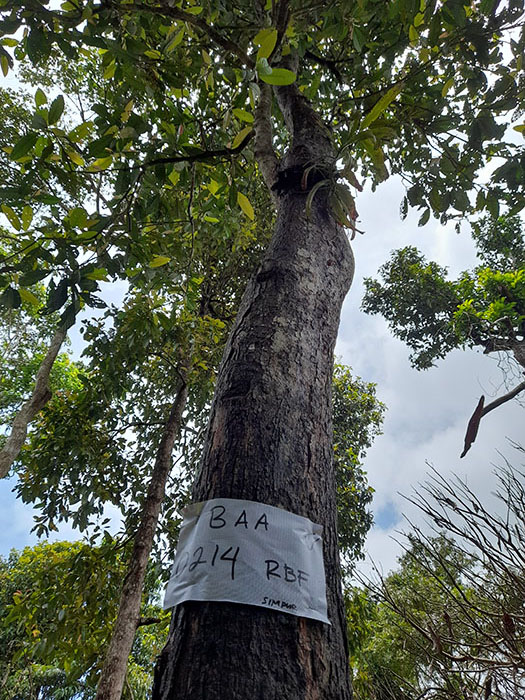 BAA
214 RBF
SIMPUR